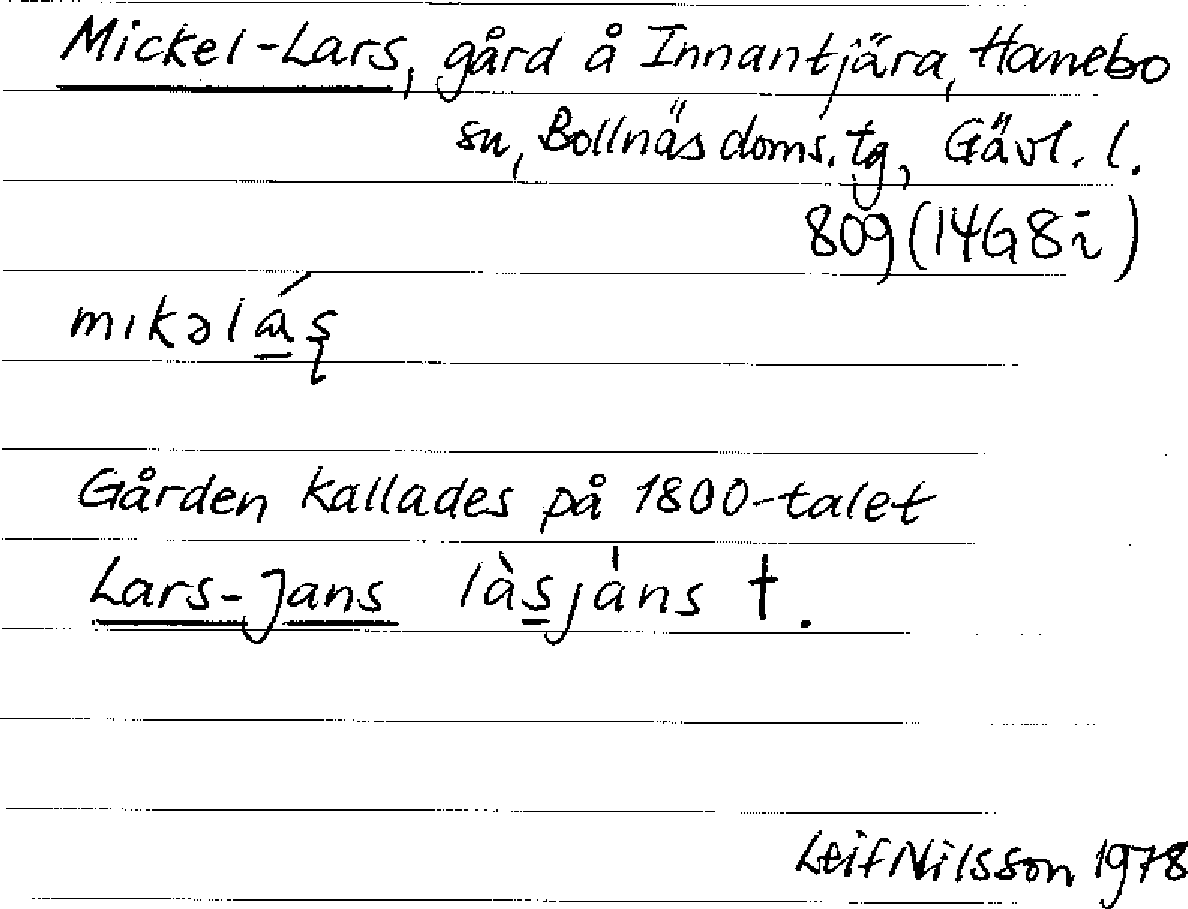 Mickel-Lars, gård å Innantjära, Hanebo
sn, Bollnäs doms.tg, Gävl. l.
809 (14G8i)
mıkəlás̨
Gården kallades på 1800-talet
Lars-Jans làsjáns †.
Leif Nilsson 1978